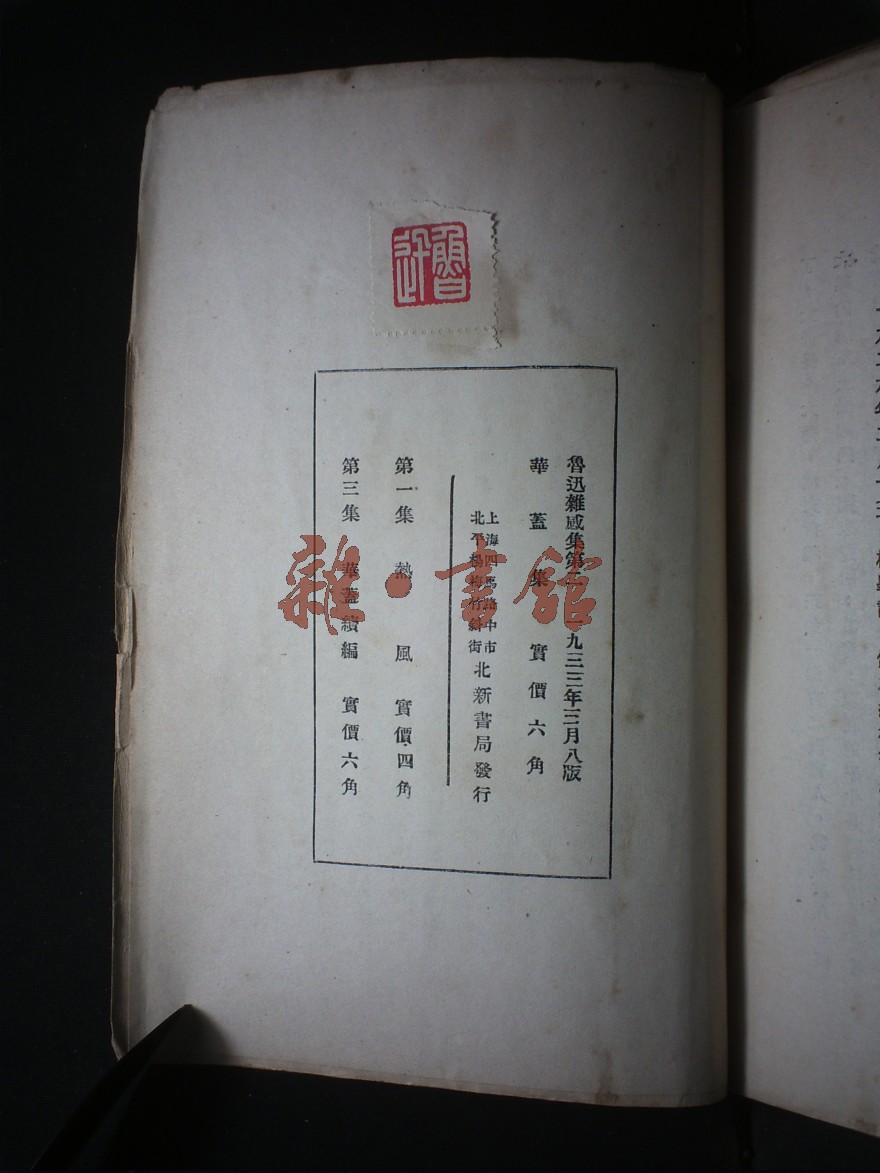 魯迅
魯迅雜感集第二 一九三三年三月八版
華蓋集 實價六角
上海四馬路中市
北平楊梅竹斜街
北新書局發行
第一集 熱風 實價四角
第三集 華蓋續編 實價六角
雜·書館